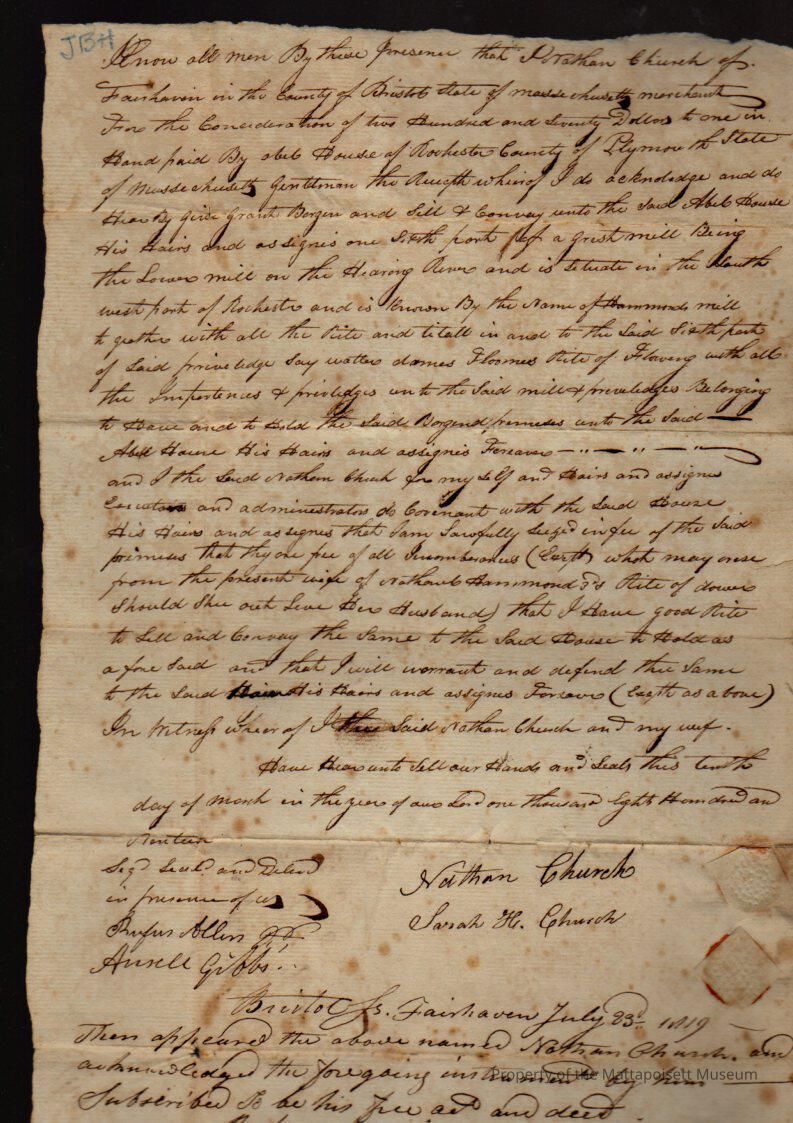 JBH
Know all men By these presence that I Nathan Church of
Fairhaven in the County of Bristol State of massechusetts merchant
For the Consideration of two Hundred and Seventy Dollors to one in
Hand paid By abel House of Rochester County of Plymouth State
of Massechusetts Gentleman the whereof I do acknoledge and do
Hear By Give Grant Borgen and Sell & Convay unto the Said Abel House
His Hairs and assignes one Sixth part of a grist mill Being
the Lower mill on the Hearing River and is Situate in the South
west part of Rochester and is Known By the Name of Hammonds mill
to geather with all the Rite and titall in and to the Said Sixth part
of Said priveledge Say watter dames Floomes Rite of Flowing with all
the & priviledges unto the Said mill & priveledges Belonging
to Have and to Hold the Said Borgend premeses unto the Said
Abel House His Hairs and assignes Forever
and I the Said Nathan Church for my Self and Hairs and assignes
Executors and administrators do Covenant with the Said House
His Hairs and assignes that I am Lawfully Seized in fee of the Said
premeses that they are free of all Incomberances (Exept what may arise
from the present wife of Nathanl Hammond 3d's Rite of dower
Should Shee out Live Her Husband) that I Have good Rite
to Sell and Convay the Same to the Said House to Hold as
a fore Said and that I will warrant and defend the Same
to the Said His Hairs and assignes Forever (Exept as a bove)
In Witness wheer of I thee Said Nathan Church and my wif.
Have Hearunto Sett our Hands and Seals this tenth
day of March in the year of our Lord one thousand Eight Hundred and
Ninteen
Sigd Seald and Deled
in presence of us
Rufus Allen
Ansell Gibbs
Nathan Church
Sarah H. Church
Bristol Ss. Fairhaven July 23d 1819
Then appeared the above named Nathan Church and
acknowledged the fore going instrument by him
Subscribed to be his free act and deed
Property of the Mattapoisett Museum